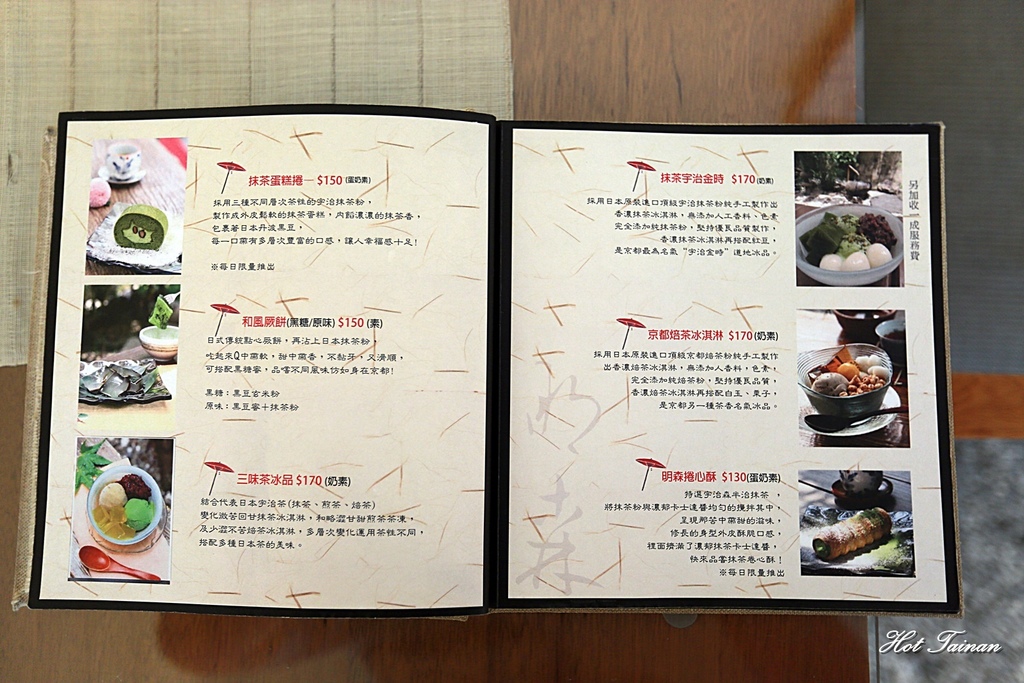 抹茶蛋糕捲— $150 (蛋奶素)
採用三種不同層次茶性的宇治抹茶粉,
製作成外皮鬆軟的抹茶蛋糕,內餡濃濃的抹茶香,
包裹著日本丹波黑豆,
每一口需有多層次豐富的口感,讓人幸福感十足!
※每日限量推出
和風蕨餅(黑糖/原味) $150 (素)
日式傳統點心蕨餅,再沾上日本抹茶粉,
吃起來Q中帶軟,甜中帶香,不黏牙,又滑順,
可搭配黑糖蜜,品嚐不同風味仿如身在京都!
黑糖:黑豆宙米粉
原味:黑豆蜜+抹茶粉
三味茶冰品 $170 (奶素)
結合代表日本宇治茶(抹茶、煎茶、焙茶)
變化微苦回甘抹茶冰淇淋,和略澀甘甜煎茶茶凍,
及少澀不苦焙茶冰淇淋,多層次變化運用茶性不同,
搭配多種日本茶的美味。
抹茶宇治金時 $170 (奶素)
採用日本原裝進口頂級宇治抹茶粉純手工製作出
香濃抹茶冰淇淋,無添加人工香料、色素
完全添加純抹茶粉,堅持優良品質製作,
香濃抹茶冰淇淋再搭配紅豆,
是京都最為名氣“宇治金時”道地冰品。
京都焙茶冰淇淋 $170(奶素)
採用日本原裝進口頂級京都焙茶粉純手工製作
出香濃焙茶冰淇淋,無添加人工香料、色素,
完全添加純焙茶粉,堅持優良品質,
香濃焙茶冰淇淋再搭配白玉、栗子,
是京都另一種茶香名氣冰品。
明森捲心酥 $130(蛋奶素)
特選宇治森半治抹茶,
將抹茶粉與濃郁卡士達醬均勻的攪拌其中,
呈現即苦中帶甜的滋味,
修長的身型外皮酥脆口感,
裡面擠滿了濃郁抹茶卡士達醬,
快來品嘗抹茶卷心酥!
※每日限量推出
另加收一成服務費
明森
Hot Tainan